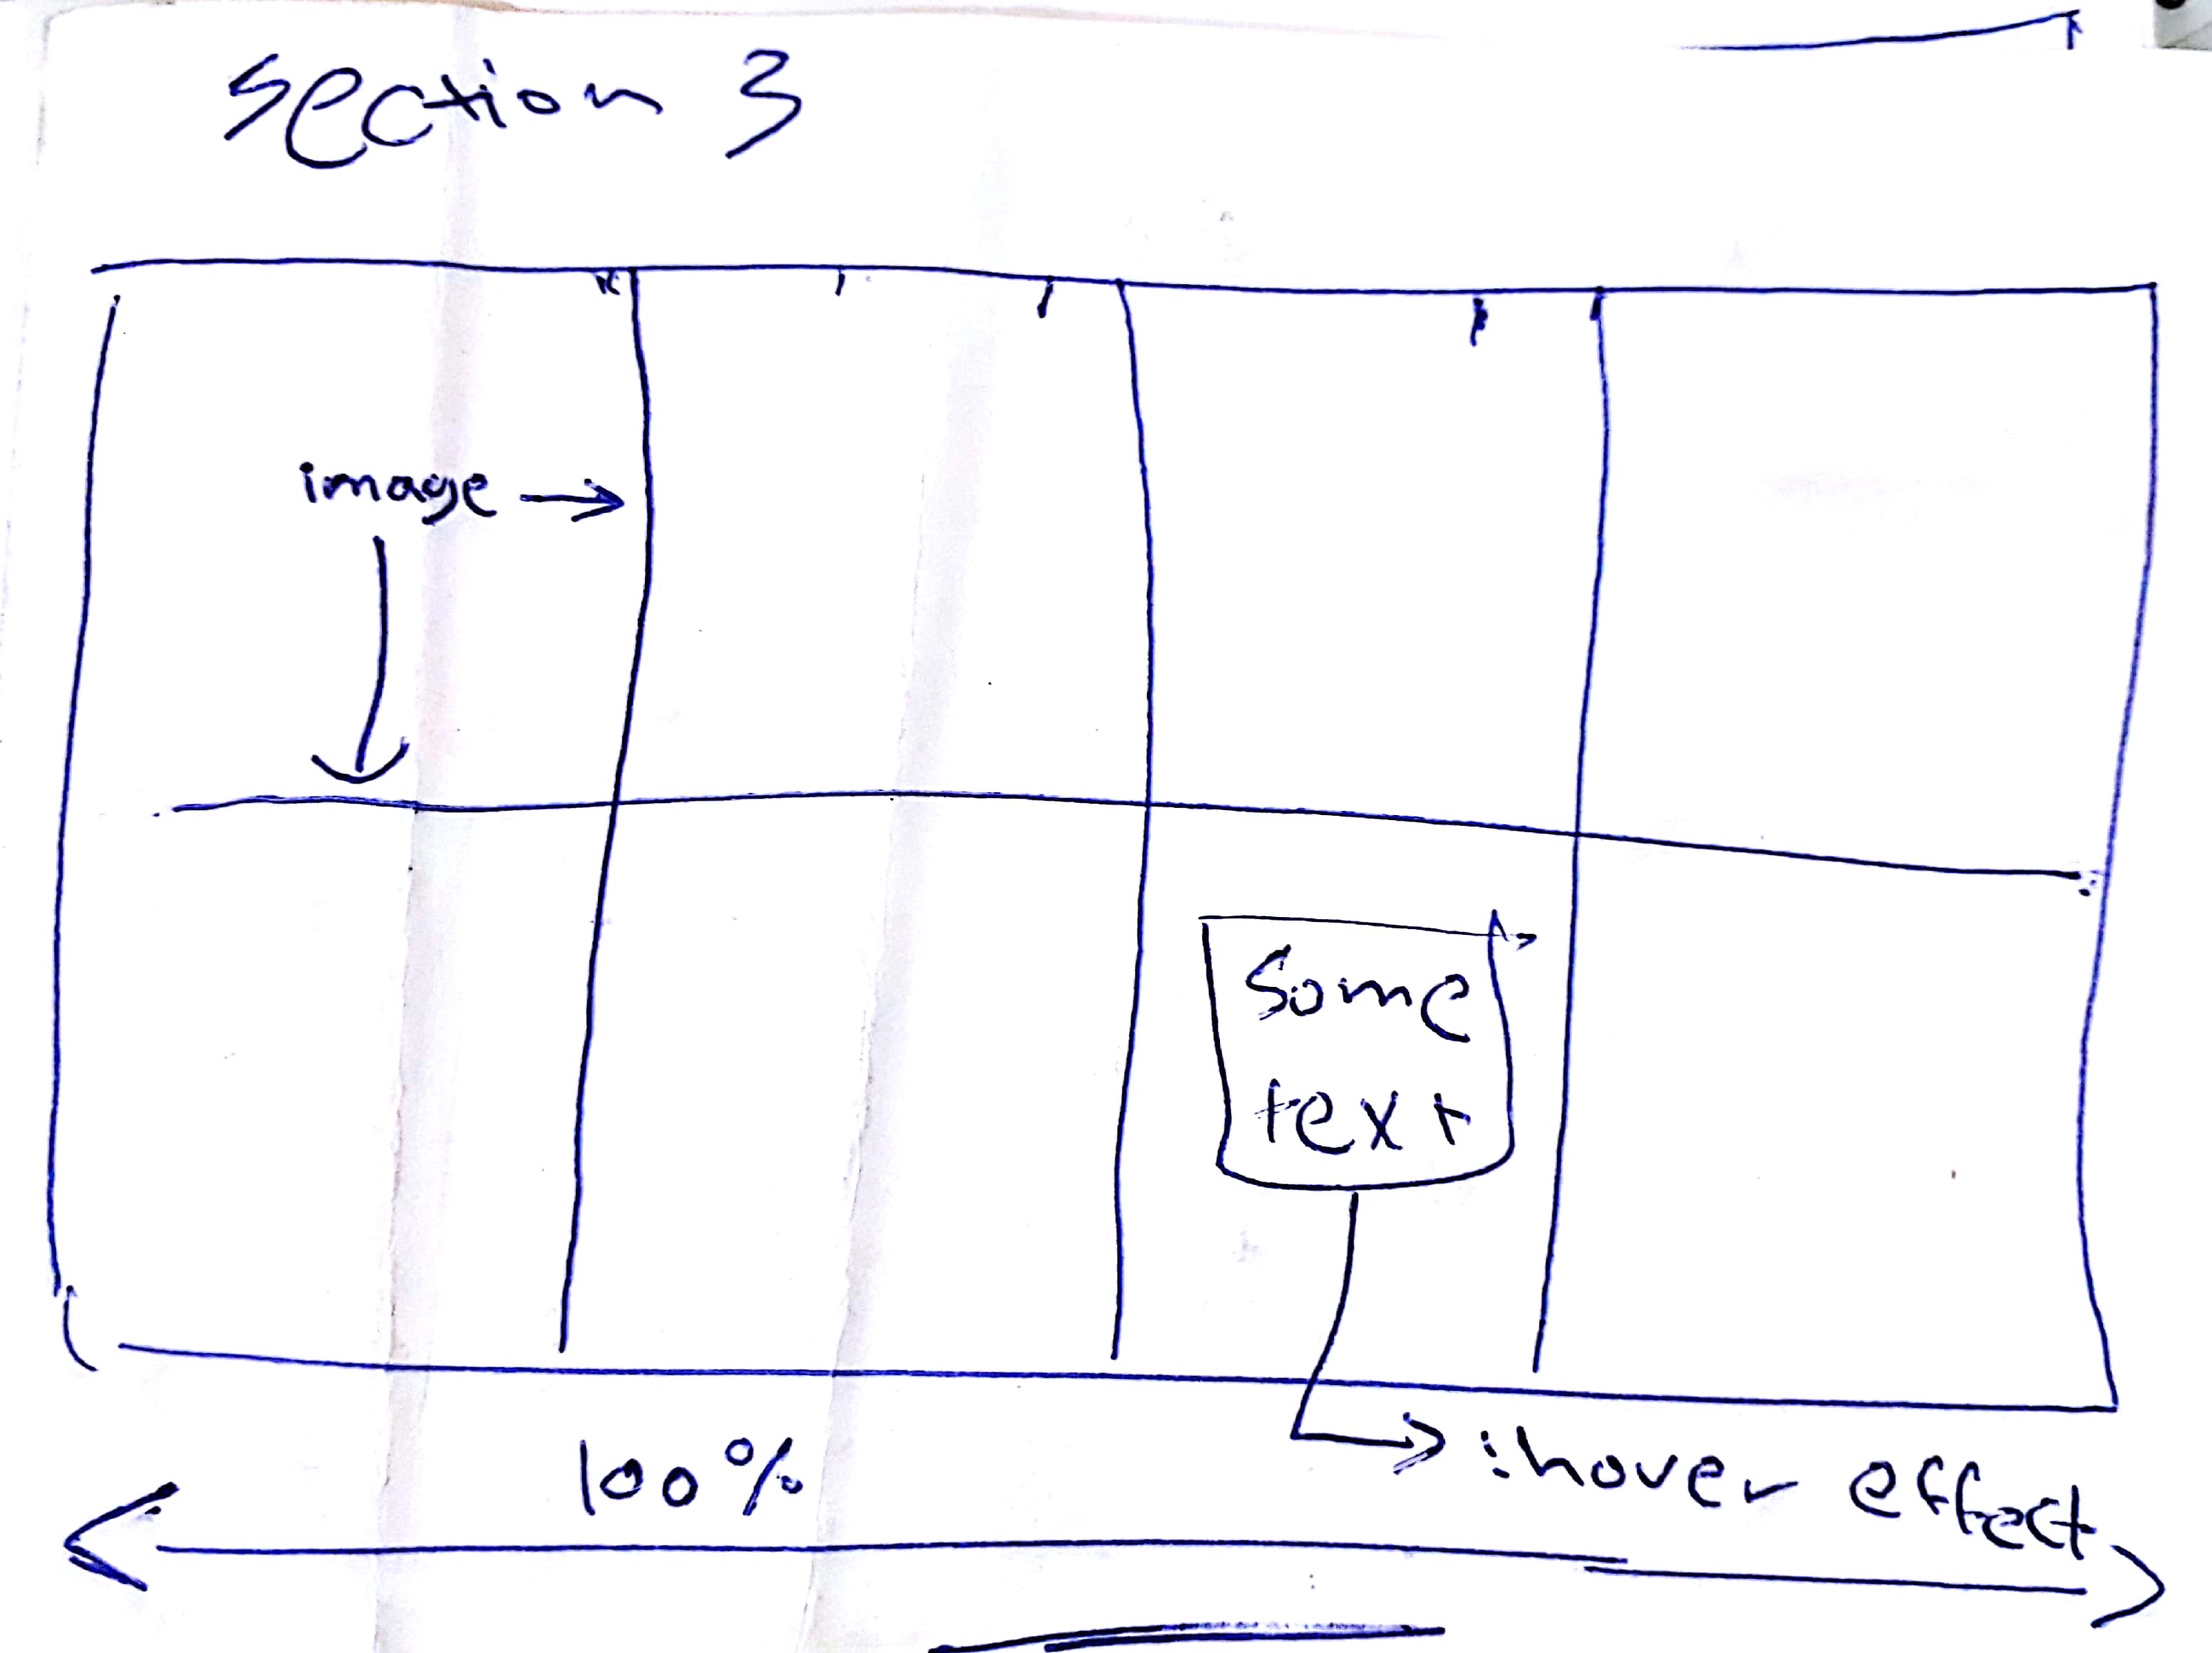 section 3
image
Some
text
100%
:hover effect